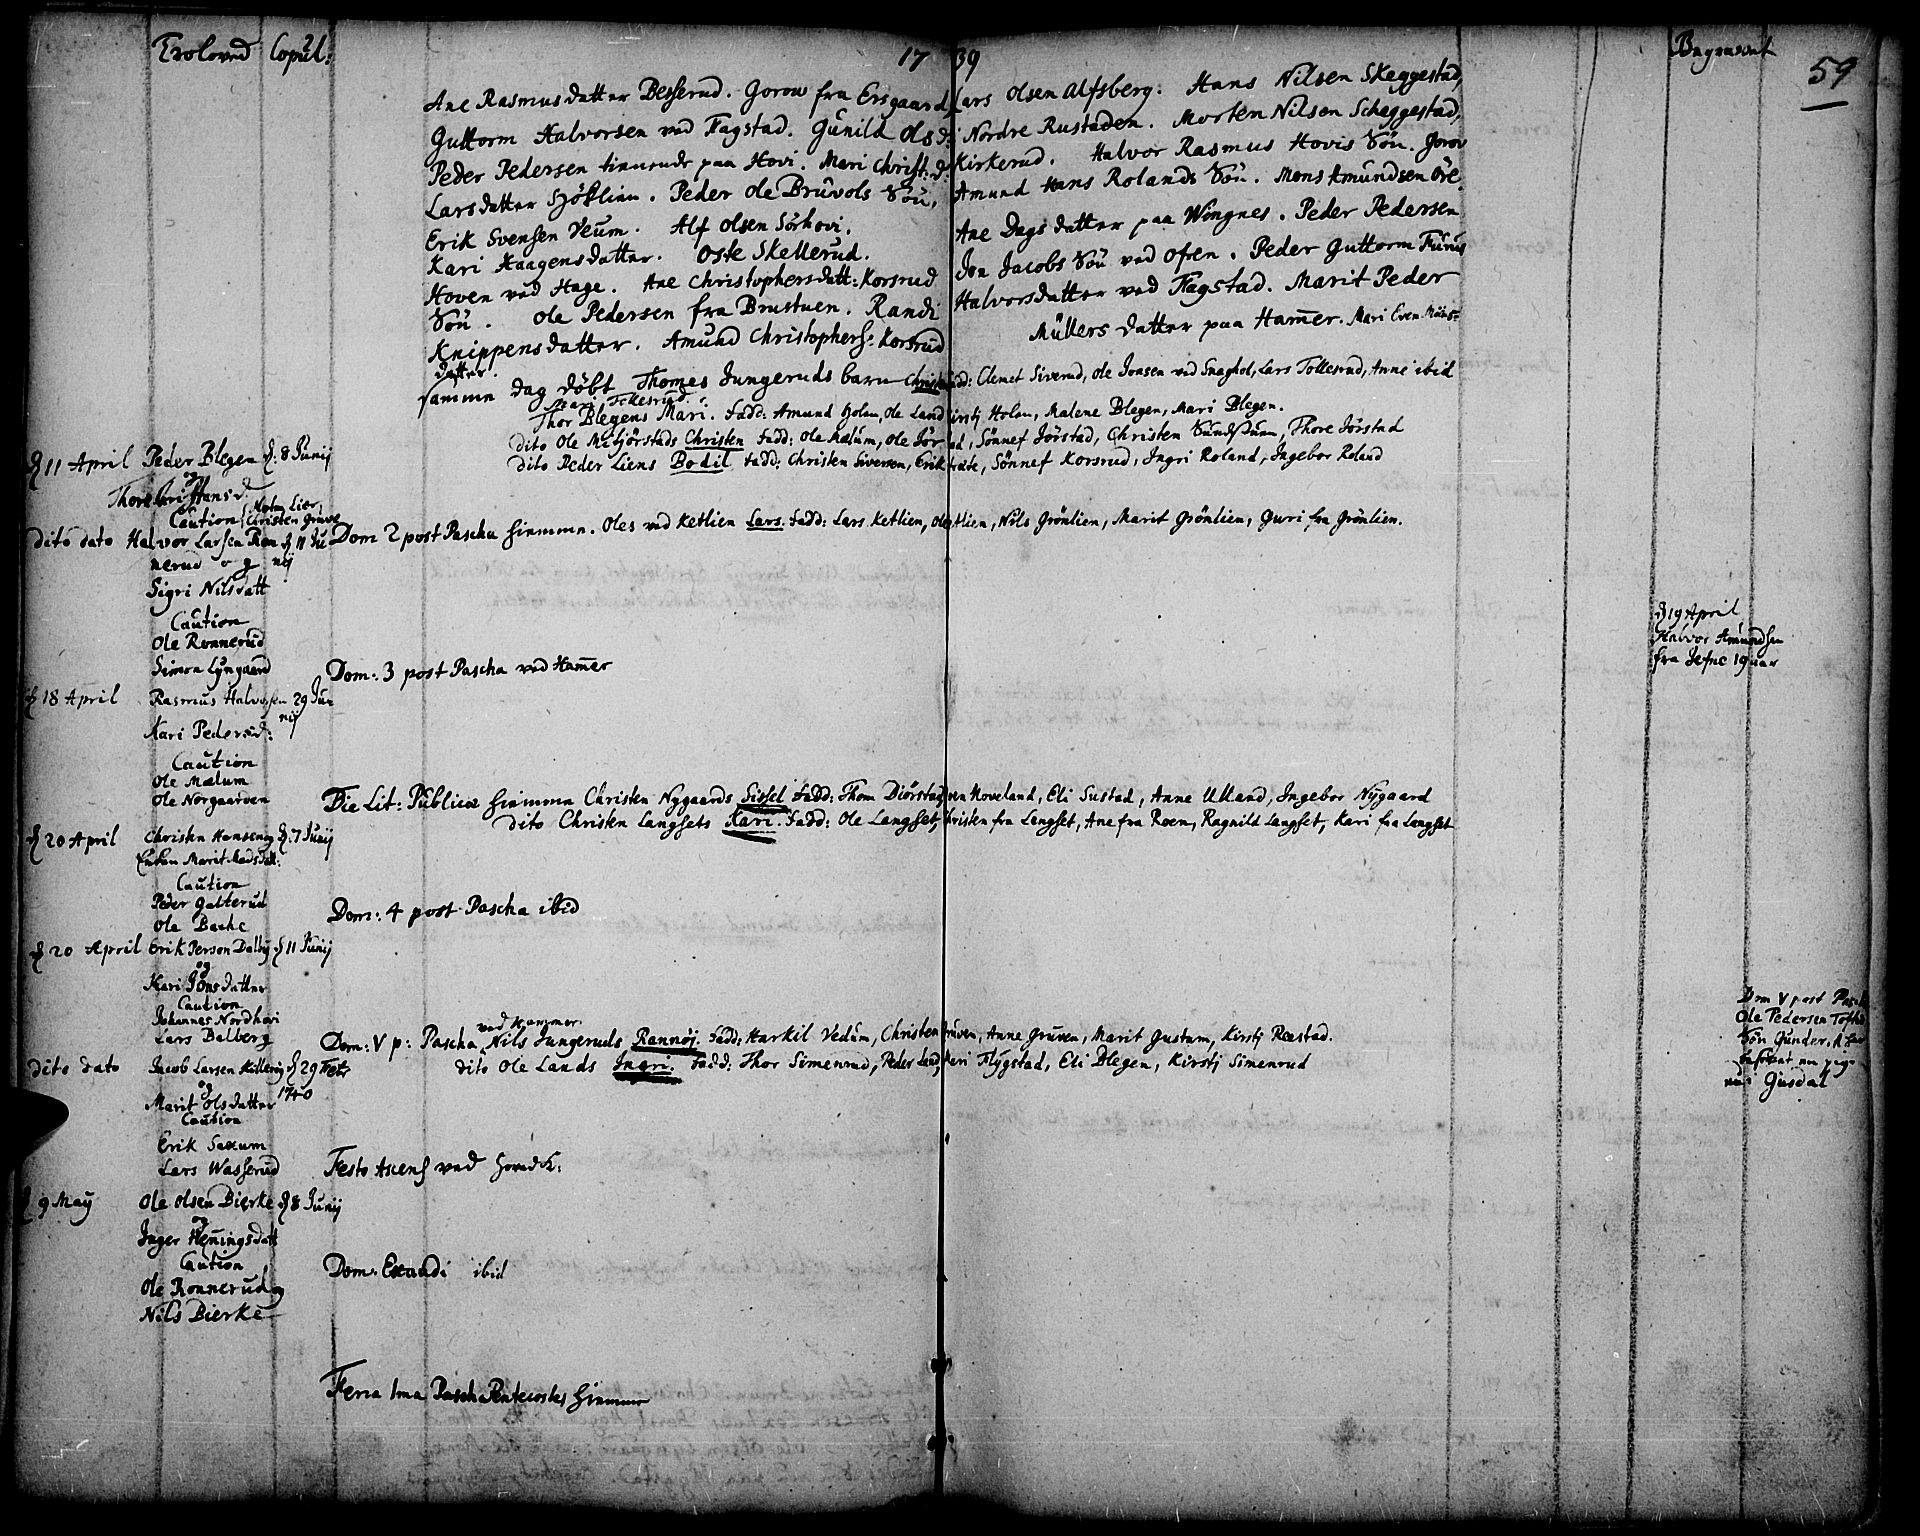 Troloved Copul: 1739 Begravet 59
Ane Rasmusdatter Besserud. Gorow fra Ersgaard, Lars Olsen Alfsberg: Hans Nilsen Skeggestad,
Guttorm Halvorsen ved Fagstad. Gunild Olsd: Nordre Rustaden. Morten Nilsen Scheggestad,
Peder Pedersen tienende paa Hovi. Mari Christ:d: Kirkerud. Halvor Rasmus Hovis Søn. Jorov
Larsdatter Sjøstlien. Peder Ole Bruvols Søn, Amund Hans Rolands Søn. Mons Amundsen Öre,
Erik Svensen Veum. Alf Olsen Sørhovi. Ane Dagsdatter paa Wingnes. Peder Pedersen
Kari Haagensdatter. Oste Skellerud. Jon Jacobs Søn ved Ofren. Peder Guttorm Furus
Hoven ved Hage. Ane Christophersdatt: Korsrud Halvorsdatter ved Fagstad. Marit Peder
Søn. Ole Pedersen fra Brustuen. Randi Müllers datter paa Ham̄er. Mari Even Möns
Knippensdatter. Amund Christophers: Korsrud
datter.
samme dag døbt Thomes Jungeruds barn Christen Fadd: Clemet Siverud, Ole Jonsen ved Snaghol, Lars Tollesrud, Anne ibid
Mari Tollesrud.
Thor Blegens Mari. Fadd: Amund Holen, Ole Land, Kirstj Holen, Malene Blegen, Mari Blegen.
dito Ole Melgjörstads Christen Fadd: Ole Mælum, Ole Jörstad, Sönnef Jörstad, Christen Sundstuen, Thore Jörstad
dito Peder Liens Bodil Fadd: Christen Siversen, Erik Fræte, Sönnef Korsrud, Ingri Roland, Ingebor Roland
d 11 April Peder Blegen d: 8 Junij
og
Thore Hansd.
Caution Christen Gruve
Dom 2 post Pascha hiemme. Oles ved Ketlien Lars. Fadd: Lars Ketlien, Ole Ketlien, Nils Grönlien, Marit Grönlien, Guri fra Grönlien.
dito dato Halvor Larsen Ronnerud og d 11 Junij
Sigri Nilsdatt
Caution
Ole Ronnerud
Simon Lyngaard
d 19 April
Halvor Amundsen
fra Jefne 19 aar
Dom: 3 post Pascha ved Ham̄er
d 18 April Rasmus Halvorsen 29 Junij
Kari Pedersd:
Caution
Ole Mælum
Ole Norgaarden
Die Lit: Publicæ hiemme Christen Nygaards Sissel Fadd: Thom Diörstad, Even Hoveland, Eli Sustad, Anne Ulland, Ingebor Nygaard
dito Christen Langsets Kari. Fadd: Ole Langset, Christen fra Langset, Ane fra Roen, Ragnild Langset, Kari fra Langset
d 20 April Christen Hansen og d: 7 Junij
Enken Marit Madsdatt:
Caution
Peder Galterud
Ole Bache
Dom: 4 post Pascha ibid
d 20 April Erik Person Dalby d 11 Junij
og
Kari Jönsdatter
Caution
Johannes Nordhovi
Lars Dalberg
Dom V post Pascha
Ole Pedersen
Søn Gunder,
Gusdal
Dom: V p: Pascha ved Hammer Nils Jungeruds Rannoj. Fadd: Harkil Vedum, Christen Gruven, Anne Gruven, Marit Gustum, Kirstj Roestad.
dito Ole Lands Ingri. Fadd: Thor Simenrud, Peder Land, Mari Flygstad, Eli Blegen, Kirstj Simenrud
dito dato Jacob Larsen d 29 Febr 1740
og
Marit Olsdatter
Caution
Erik Saxum
Lars Wasserud
Festo Ascens ved hovedk:
d 9 May Ole Olsen Bierke d 8 Junij
og
Inger Hēningsdatt
Caution
Ole Ronnerud og
Nils Bierke
Dom: Exaudi ibid
Feria 1ma Pentecostes hiemme